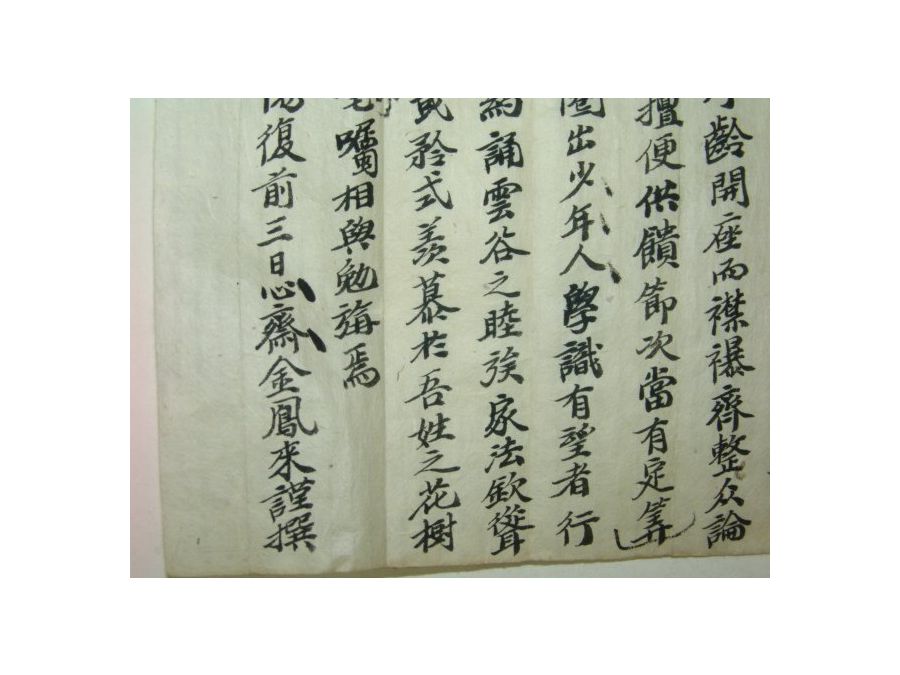 齡開座而襟襮齊整众論
擅便供饋節次當有定筭
出少年人學識有望者行
約誦雲谷之睦族家法欽聳
矜式羨慕於吾姓之花樹
囑相與勉旃焉
陽復前三日心齋金鳳來謹撰